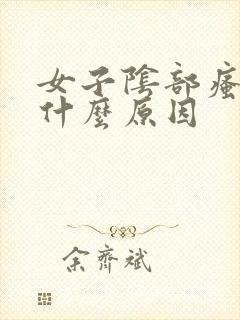 女子陰部瘙
什麼原因
余齊斌